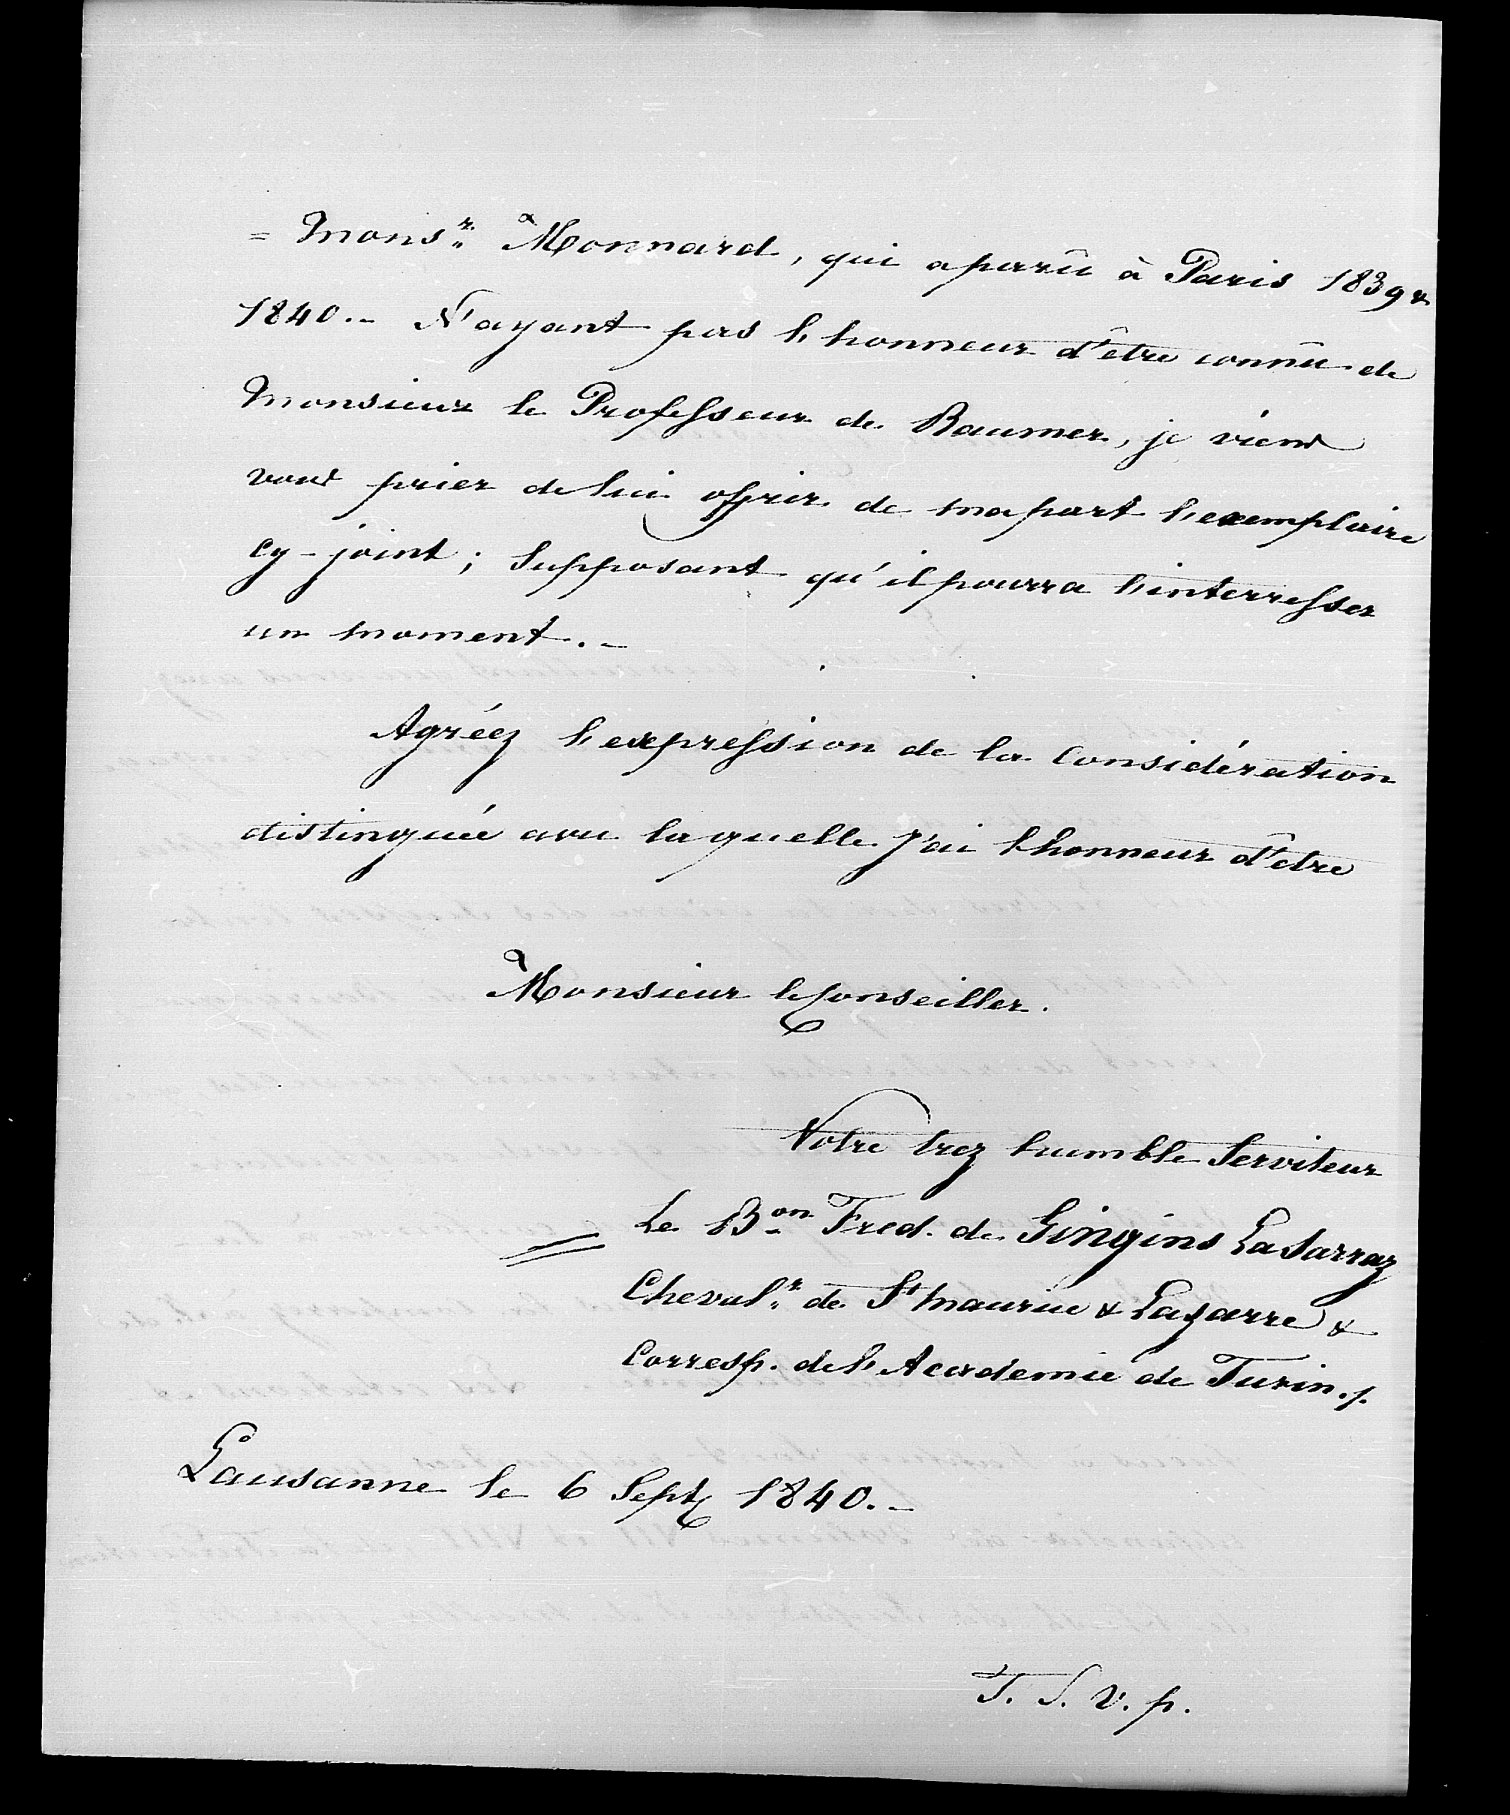 = Monsr. Monnard, qui a parû à Paris 1839 &
1840.- N'ayant pas l'honneur d'être connû de
Monsieur le Professeur de Raumer, je viens
vous prier de lui offrir de ma part l'exemplaire
cy-joint; supposant qu'il pourra l'interresser
un moment.-
Agréez l'expression de la Considération
distinguée avec laquelle j'ai l'honneur d'être
Monsieur le Conseiller.
Votre trez humble Serviteur
Le Bon Fred. de Gingins LaSarraz
Chevalr. de St Maurice & Lazarre &
Corresp. de l'Academie de Turin./.
Lausanne le 6 Sept 1840.-
T. S. V. p.